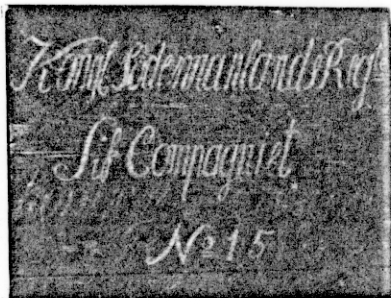 Kongl Södermanlands Regt
Lif Compagniet
No 15